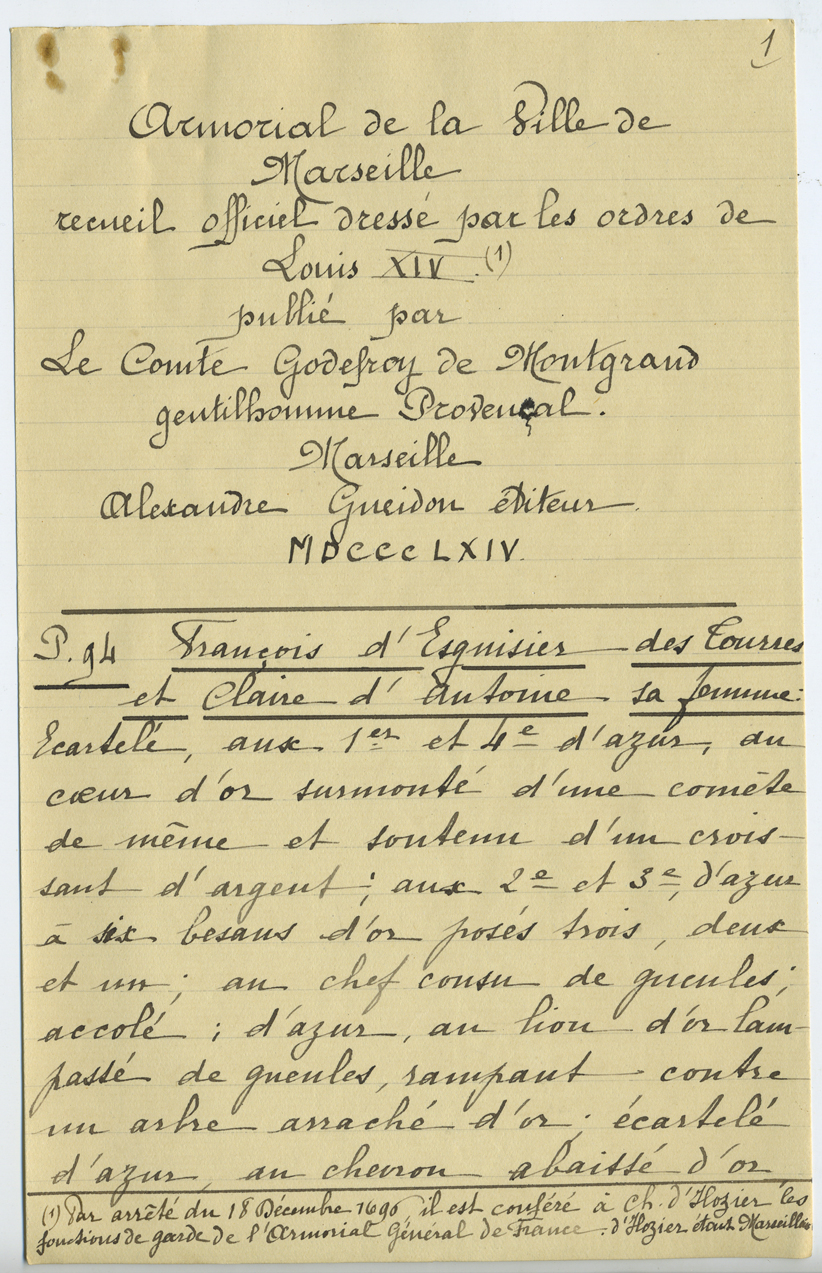 1
Armorial de la Ville de
Marseille
recueil officiel dressé par les ordres de
Louis XIV.(1)
publié par
Le Comte Godefroy de Montgrand
gentilhomme Provençal.
Marseille
Alexandre Gueidon éditeur.
MDCCCLXIV.
P. 94 François d'Esguisier des Tourres
et Claire d'Antoine sa femme:
Ecartelé, aux 1er et 4e d'azur, au
cœur d'or surmonté d'une comète
de même et soutenu d'un crois-
sant d'argent; aux 2e et 3e, d'azur
à six besans d'or posés trois, deux
et un; au chef cousu de gueules;
accolé; d'azur, au lion d'or lam-
passé de gueules, rampant contre
un arbre arraché d'or; écartelé
d'azur, au chevron abaissé d'or
(1) Par arrêté du 18 Décembre 1696, il est conféré à Ch. d'Hozier les
fonctions de garde de l'Armorial Général de France. d'Hozier était Marseillais